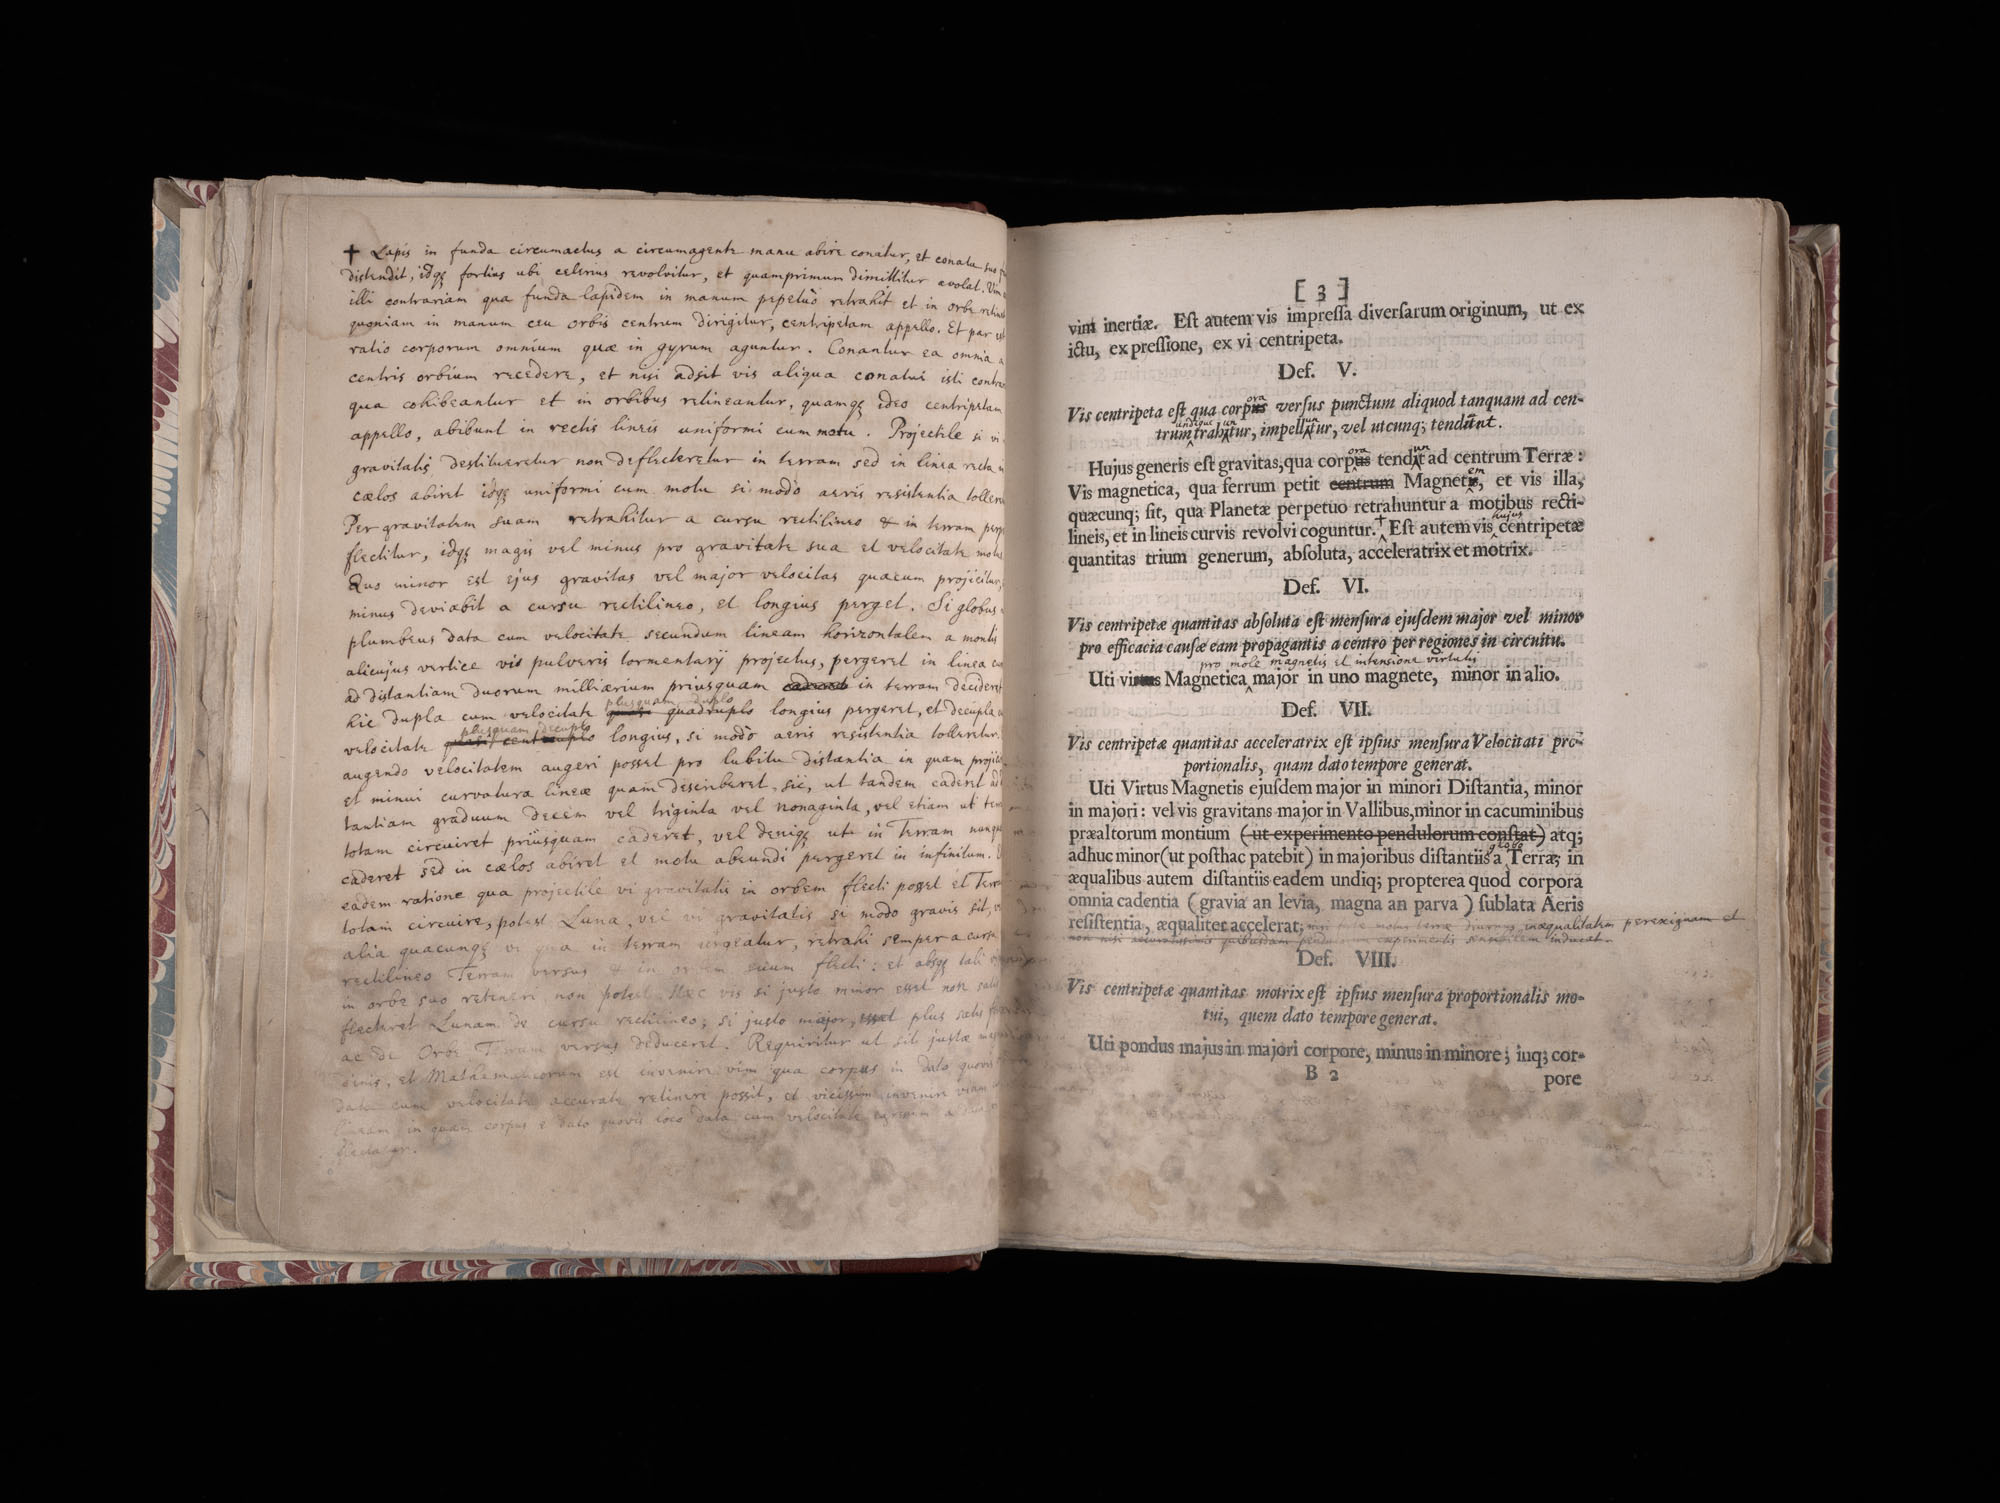 ✝ Lapis in funda circumactus a circumagente manu abire conatur, et conatu suo
distendit, idqꝫ fortius ubi celerius revolvitur, et quamprimum dimittitur avolat. Vim
illi contrariam qua funda lapidem in manum perpetuò retrahit et in orbe retinet
quoniam in manum ceu orbis centrum dirigitur, centripetam appello. Et par est
ratio corporum omnium quæ in gyrum aguntur. Conantur ea omnia a
centris orbium recedere, et nisi adsit vis aliqua conatui isti
qua cohibeantur et in orbibus retineantur, quamqꝫ ideo centripetam
appello, abibunt in rectis lineis uniformi cum motu. Projectile si vi
gravitatis destitueretur non deflecteretur in terram sed in linea recta
cælos abiret idqꝫ uniformi cum motu si modò aeris resistentia
Per gravitatem suam retrahitur a cursu rectilineo & in terram
flectitur, idqꝫ magis vel minus pro gravitate sua et velocitate motus
Quo minor est ejus gravitas vel major velocitas quacum projicitur,
minus deviabit a cursu rectilineo, et longius perget. Si globus
plumbeus data cum velocitate secundum lineam horizontalem a montis
alicujus vertice vis pulveris tormentarij projectus, pergeret in linea
ad distantiam duorum milliarium priusquam caderet in terram decideret
plusquam duplo
hic dupla cum velocitate quasi quadruplo longius pergeret, et decupla
plusquam decuplo
velocitate quasi centuplo longius, si modò aeris resistentia tolleretur.
augendo velocitatem augeri posset pro lubitu distantia in quam
et minui curvatura lineæ quam describeret, sic, ut tandem caderet ad
tantiam graduum decem vel triginta vel nonaginta, vel etiam ut
totam circuiret priusquam caderet, vel deniqꝫ ut in Terram
caderet sed in cælos abiret et motu abeundi pergeret in infinitum.
eadem ratione qua projectile vi gravitatis in orbem flecti posset et Terram
totam circuire, potest Luna, vel vi gravitatis si modo gravis sit,
alia quacunqꝫ vi qua in terram urgeatur, retrahi semper a cursu
rectilineo Terram versus & in orbem suum flecti: et absqꝫ tali
in orbe suo retineri non potest. Hæc vis si justo minor esset non satis
flecteret Lunam de cursu rectilineo; si justo major, esset plus satis
ac de Orbe Terram versus deduceret. Requiritur ut sit justæ
dinis, et Mathematicorum est invenire vim qua corpus in dato quovis
data cum velocitate accurate retineri possit, et vicissim invenire viam
lineam in quam corpus e dato quovis loco data cum velocitate egressum a
flectatur.
[ 3 ]
vim inertiæ. Eſt autem vis impreſſa diverſarum originum, ut ex
ictu, ex preſſione, ex vi centripeta.
Def. V.
ora
Vis centripeta eſt qua corpus verſus punctum aliquod tanquam ad cen-
undique un un
trum trahitur, impellitur, vel utcunq; tendunt.
ora un
Hujus generis eſt gravitas, qua corpus tendit ad centrum Terræ:
em
Vis magnetica, qua ferrum petit centrum Magnetis, et vis illa,
quæcunq; ſit, qua Planetæ perpetuo retrahuntur a motibus recti-
hujus
lineis, et in lineis curvis revolvi coguntur. ✝ Eſt autem vis centripetæ
quantitas trium generum, abſoluta, acceleratrix et motrix.
Def. VI.
Vis centripetæ quantitas abſoluta eſt menſura ejuſdem major vel minor
pro efficacia cauſæ eam propagantis a centro per regiones in circuitu.
pro mole magnetis et intensione virtutis
Uti virtus Magnetica major in uno magnete, minor in alio.
Def. VII.
Vis centripetæ quantitas acceleratrix eſt ipſius menſura Velocitati pro-
portionalis, quam dato tempore generat.
Uti Virtus Magnetis ejuſdem major in minori Diſtantia, minor
in majori: vel vis gravitans major in Vallibus, minor in cacuminibus
præaltorum montium (ut experimento pendulorum conſtat) atq;
globo
adhuc minor (ut poſthac patebit) in majoribus diſtantiis a Terra; in
æqualibus autem diſtantiis eadem undiq; propterea quod corpora
omnia cadentia (gravia an levia, magna an parva) ſublata Aeris
reſiſtentia, æqualiter accelerat; nisi quatenus motus terræ diurnus inæqualitatem perexiguam et
non nisi accuratissimis quibusdam pendulorum experimentis sensibilem inducat.
Def. VIII.
Vis centripetæ quantitas motrix eſt ipſius menſura proportionalis mo-
tui, quem dato tempore generat.
Uti pondus majus in majori corpore, minus in minore; inq; cor-
B 2
pore